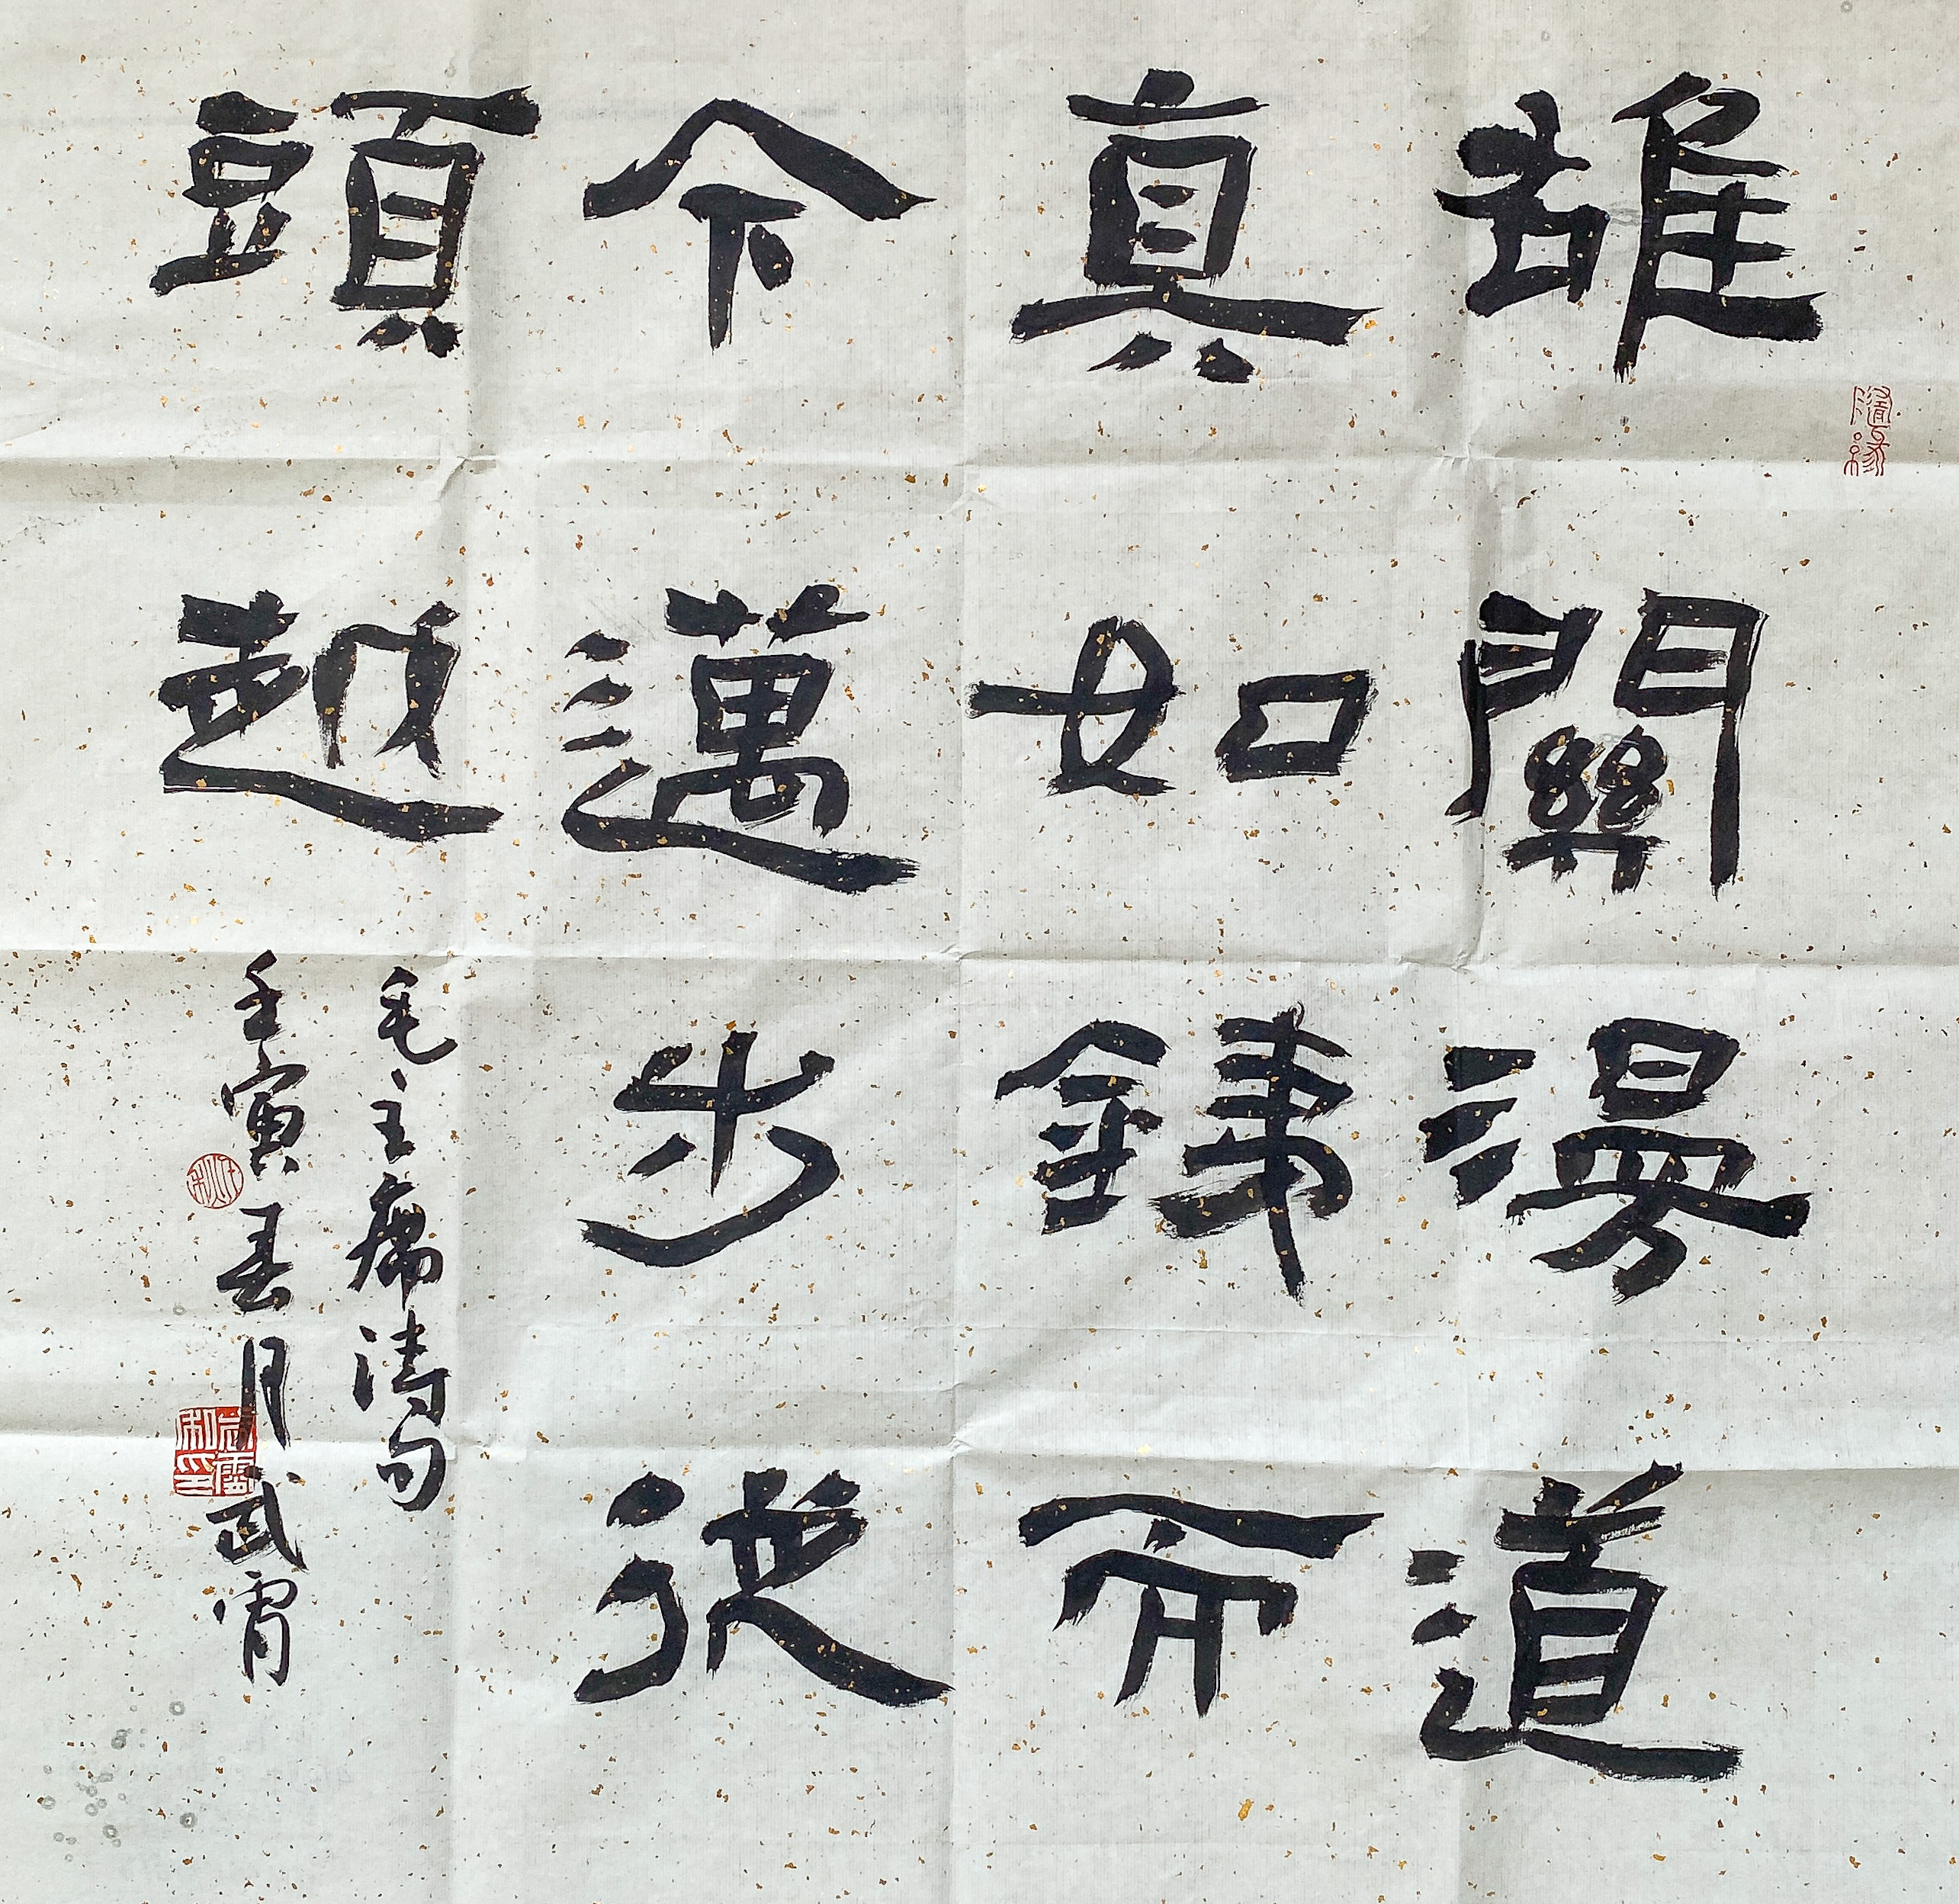 雄關漫道
真如銕而
今邁步從
頭越
毛主席詩句
壬寅春月武霄
隨緣
武霄私印